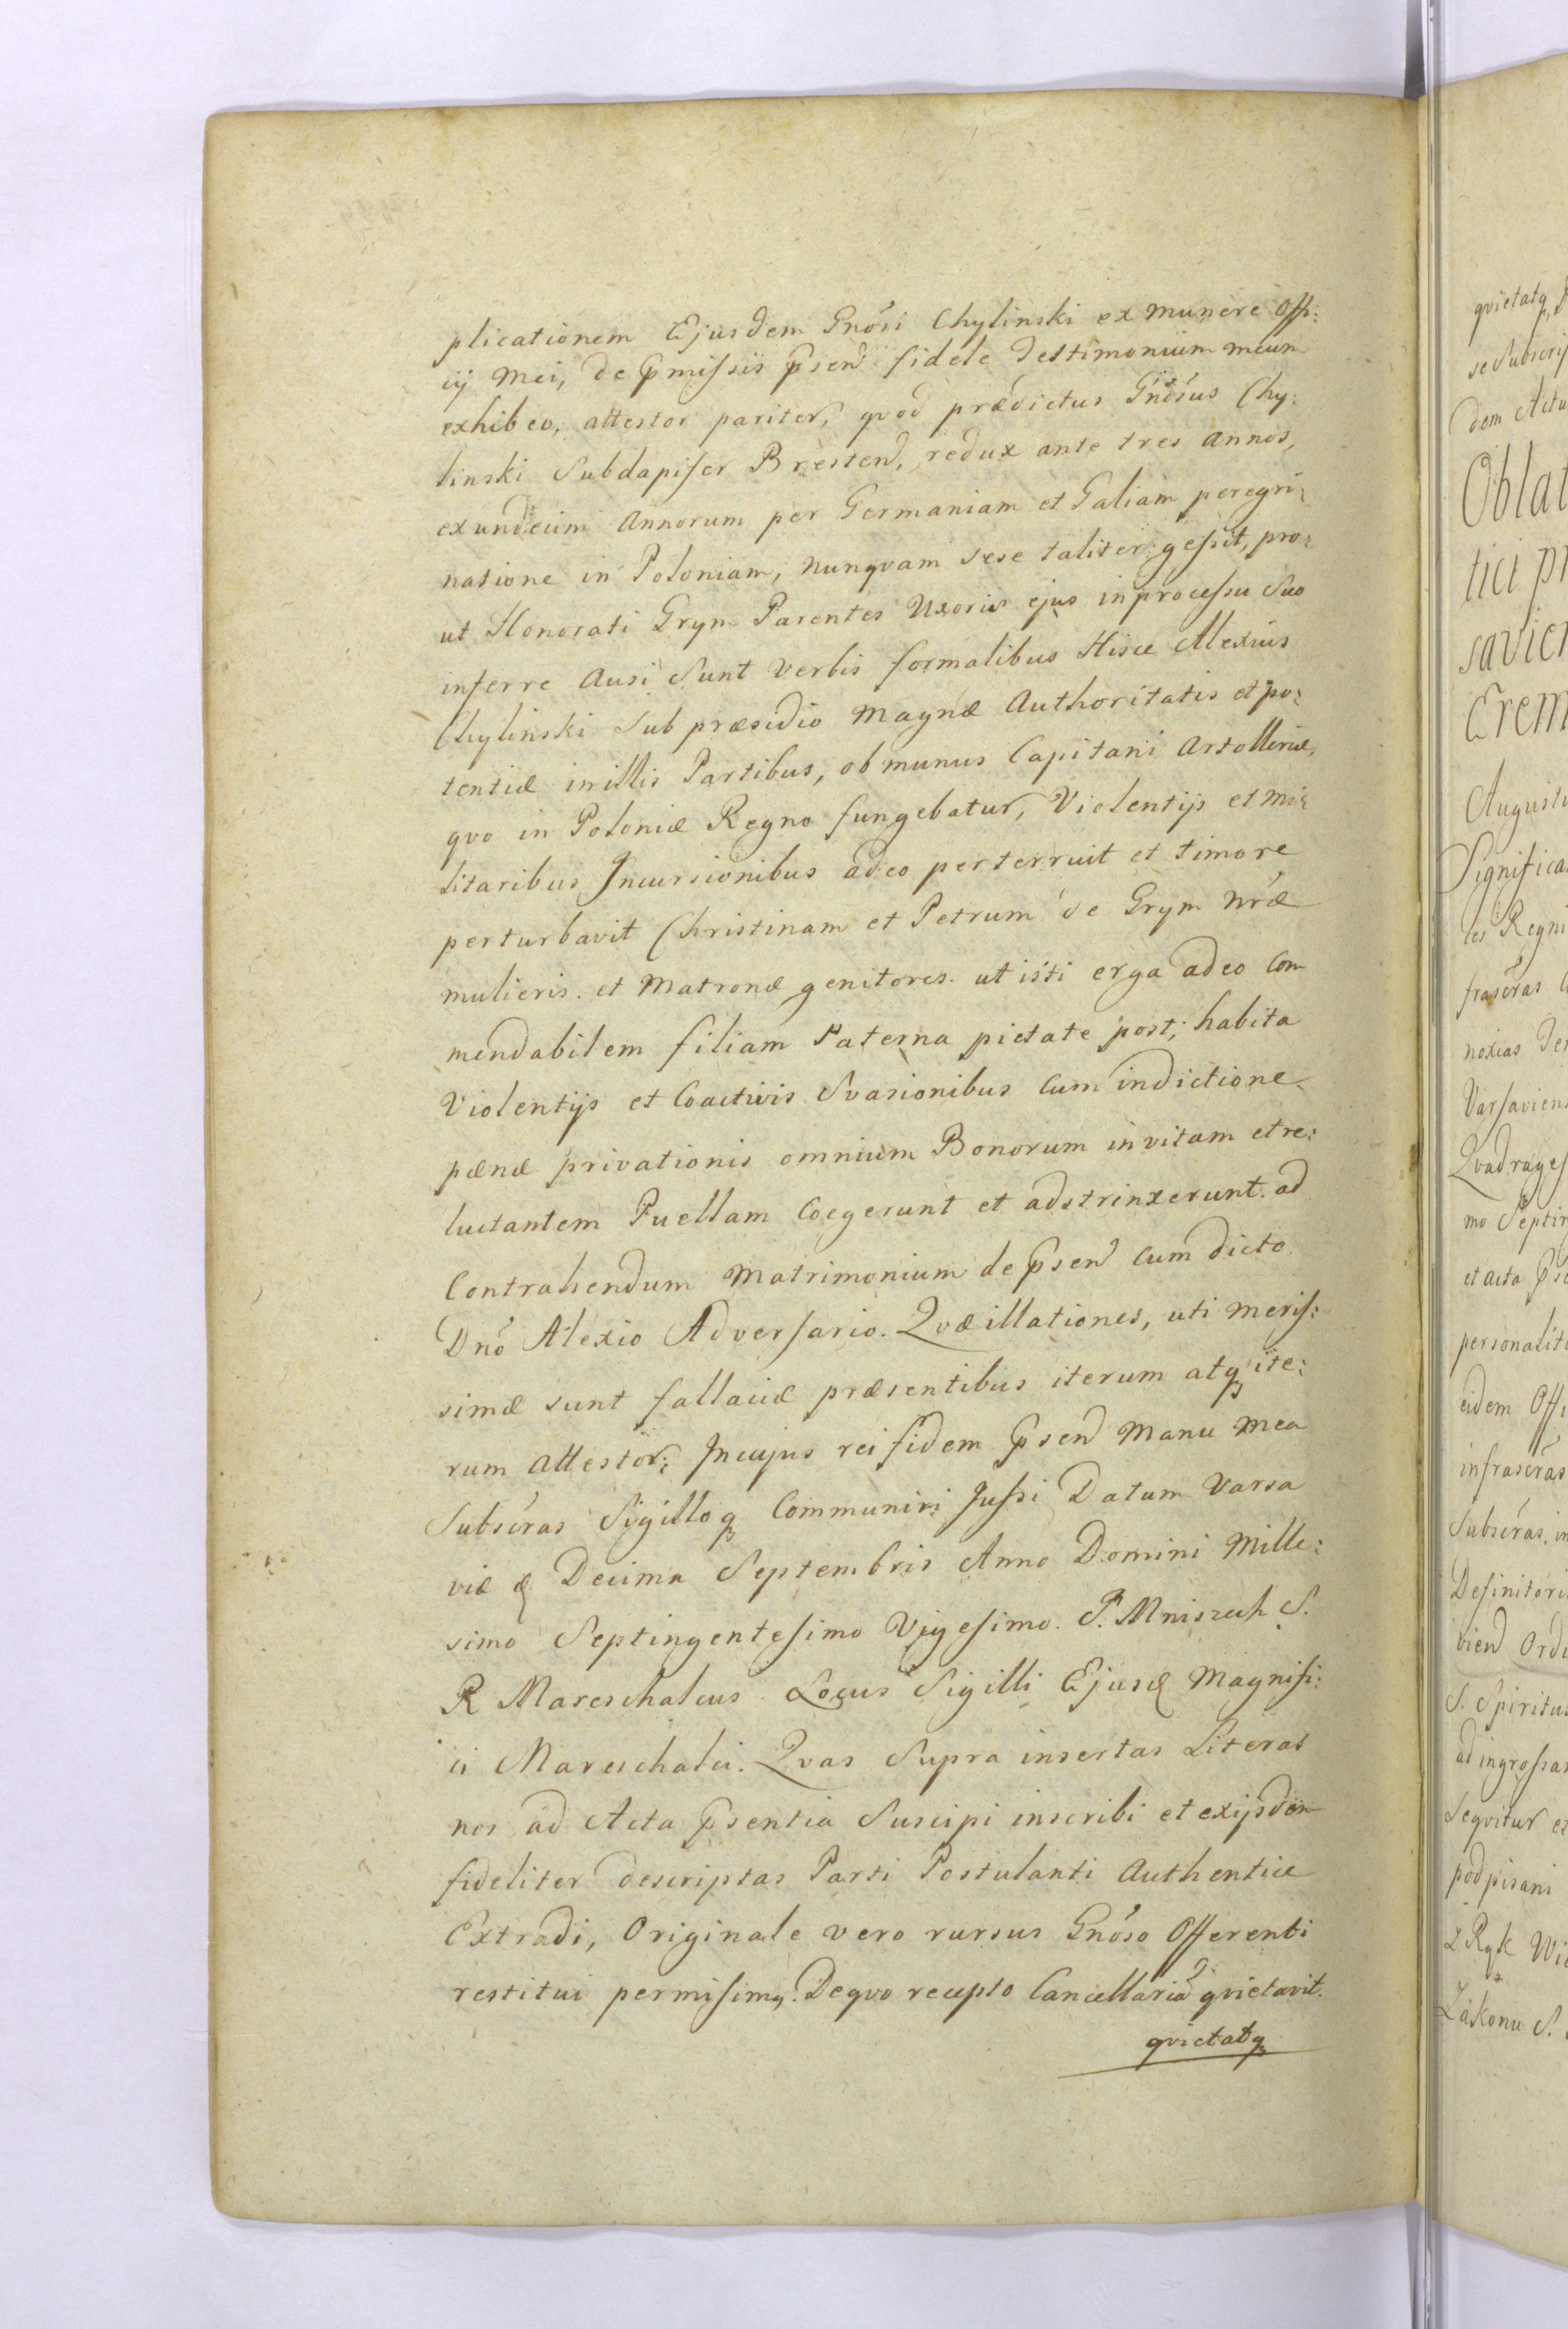 plicationem Ejusdem Gnósi Chylinski ex munere Offi:
ij Mei, de Pmissis Psen fidele Testimonium meum
exhibeo, attestor pariter, qvod prædictus Gnósus Chy:
linski Subdapifer Bresten, redux ante tres annos,
ex undecim Annorum per Germaniam et Galiam peregri:
natione in Poloniam, nunqvam sese taliter gessit, pro:
ut Honorati Grym Parentes Uxoris ejus in processu Suo
inferre Ausi Sunt verbis formalibus Hisce Alexius
Chylinski Sub præsidio Magnæ Authoritatis et po:
tentiæ in illis Partibus, ob munus Capitani Artolleriæ,
qvo in Poloniæ Regno fungebatur, Violentijs et mi:
litaribus Incursionibus adeo perterruit et timore
perturbavit Christinam et Petrum de Grym nræ
mulieris. et Matronæ genitores. ut isti erga adeo Com
mendabilem filiam Paterna pietate post; habita
Violentijs et Coactivis Svasionibus Cum indictione
pænæ privationis omnium Bonorum invitam et re:
luctantem Puellam Coegerunt et adstrinxerunt. ad
Contrahendum Matrimonium de Psen Cum dicto
Dnó Alexio Adversario. Qvæ illationes, uti meris:
simæ sunt fallaciæ præsentibus iterum atq ite:
rum attestor; In cujus rei fidem Psen Manu mea
Subscras Sigilloq Communiri Jussi Datum Varsa
viæ d Decima Septembris Anno Domini Mille:
simo Septingentesimo Vigesimo. P. Mniszech S.
R Mareschalcus Locus Sigilli Ejusd Magnifi:
ci Mareschalci. Qvas Supra insertas Literas
nos ad Acta Psentia Suscipi inscribi et exijsdem
fideliter descriptas Parti Postulanti Authentice
Extradi, Originale vero rursus Gnóso Offerenti
restitui permisimq. Deqvo recepto Cancellariã qvietavit.
qvietatq
qvietatq,
se Subscri
dem Actu
Oblat
tici pr
savien
Erem
August
Significa
les Regni
frascras
noxias
Varsavien
Qvadrages
mo Septin
et acta
personalit
eidem Offi
infrascras
Subscras, in
Definitori
vien Ord
S. Spiritus
ad ingrossan
Seqvitur et
podpisani
Z Rąk
Zakonu S.